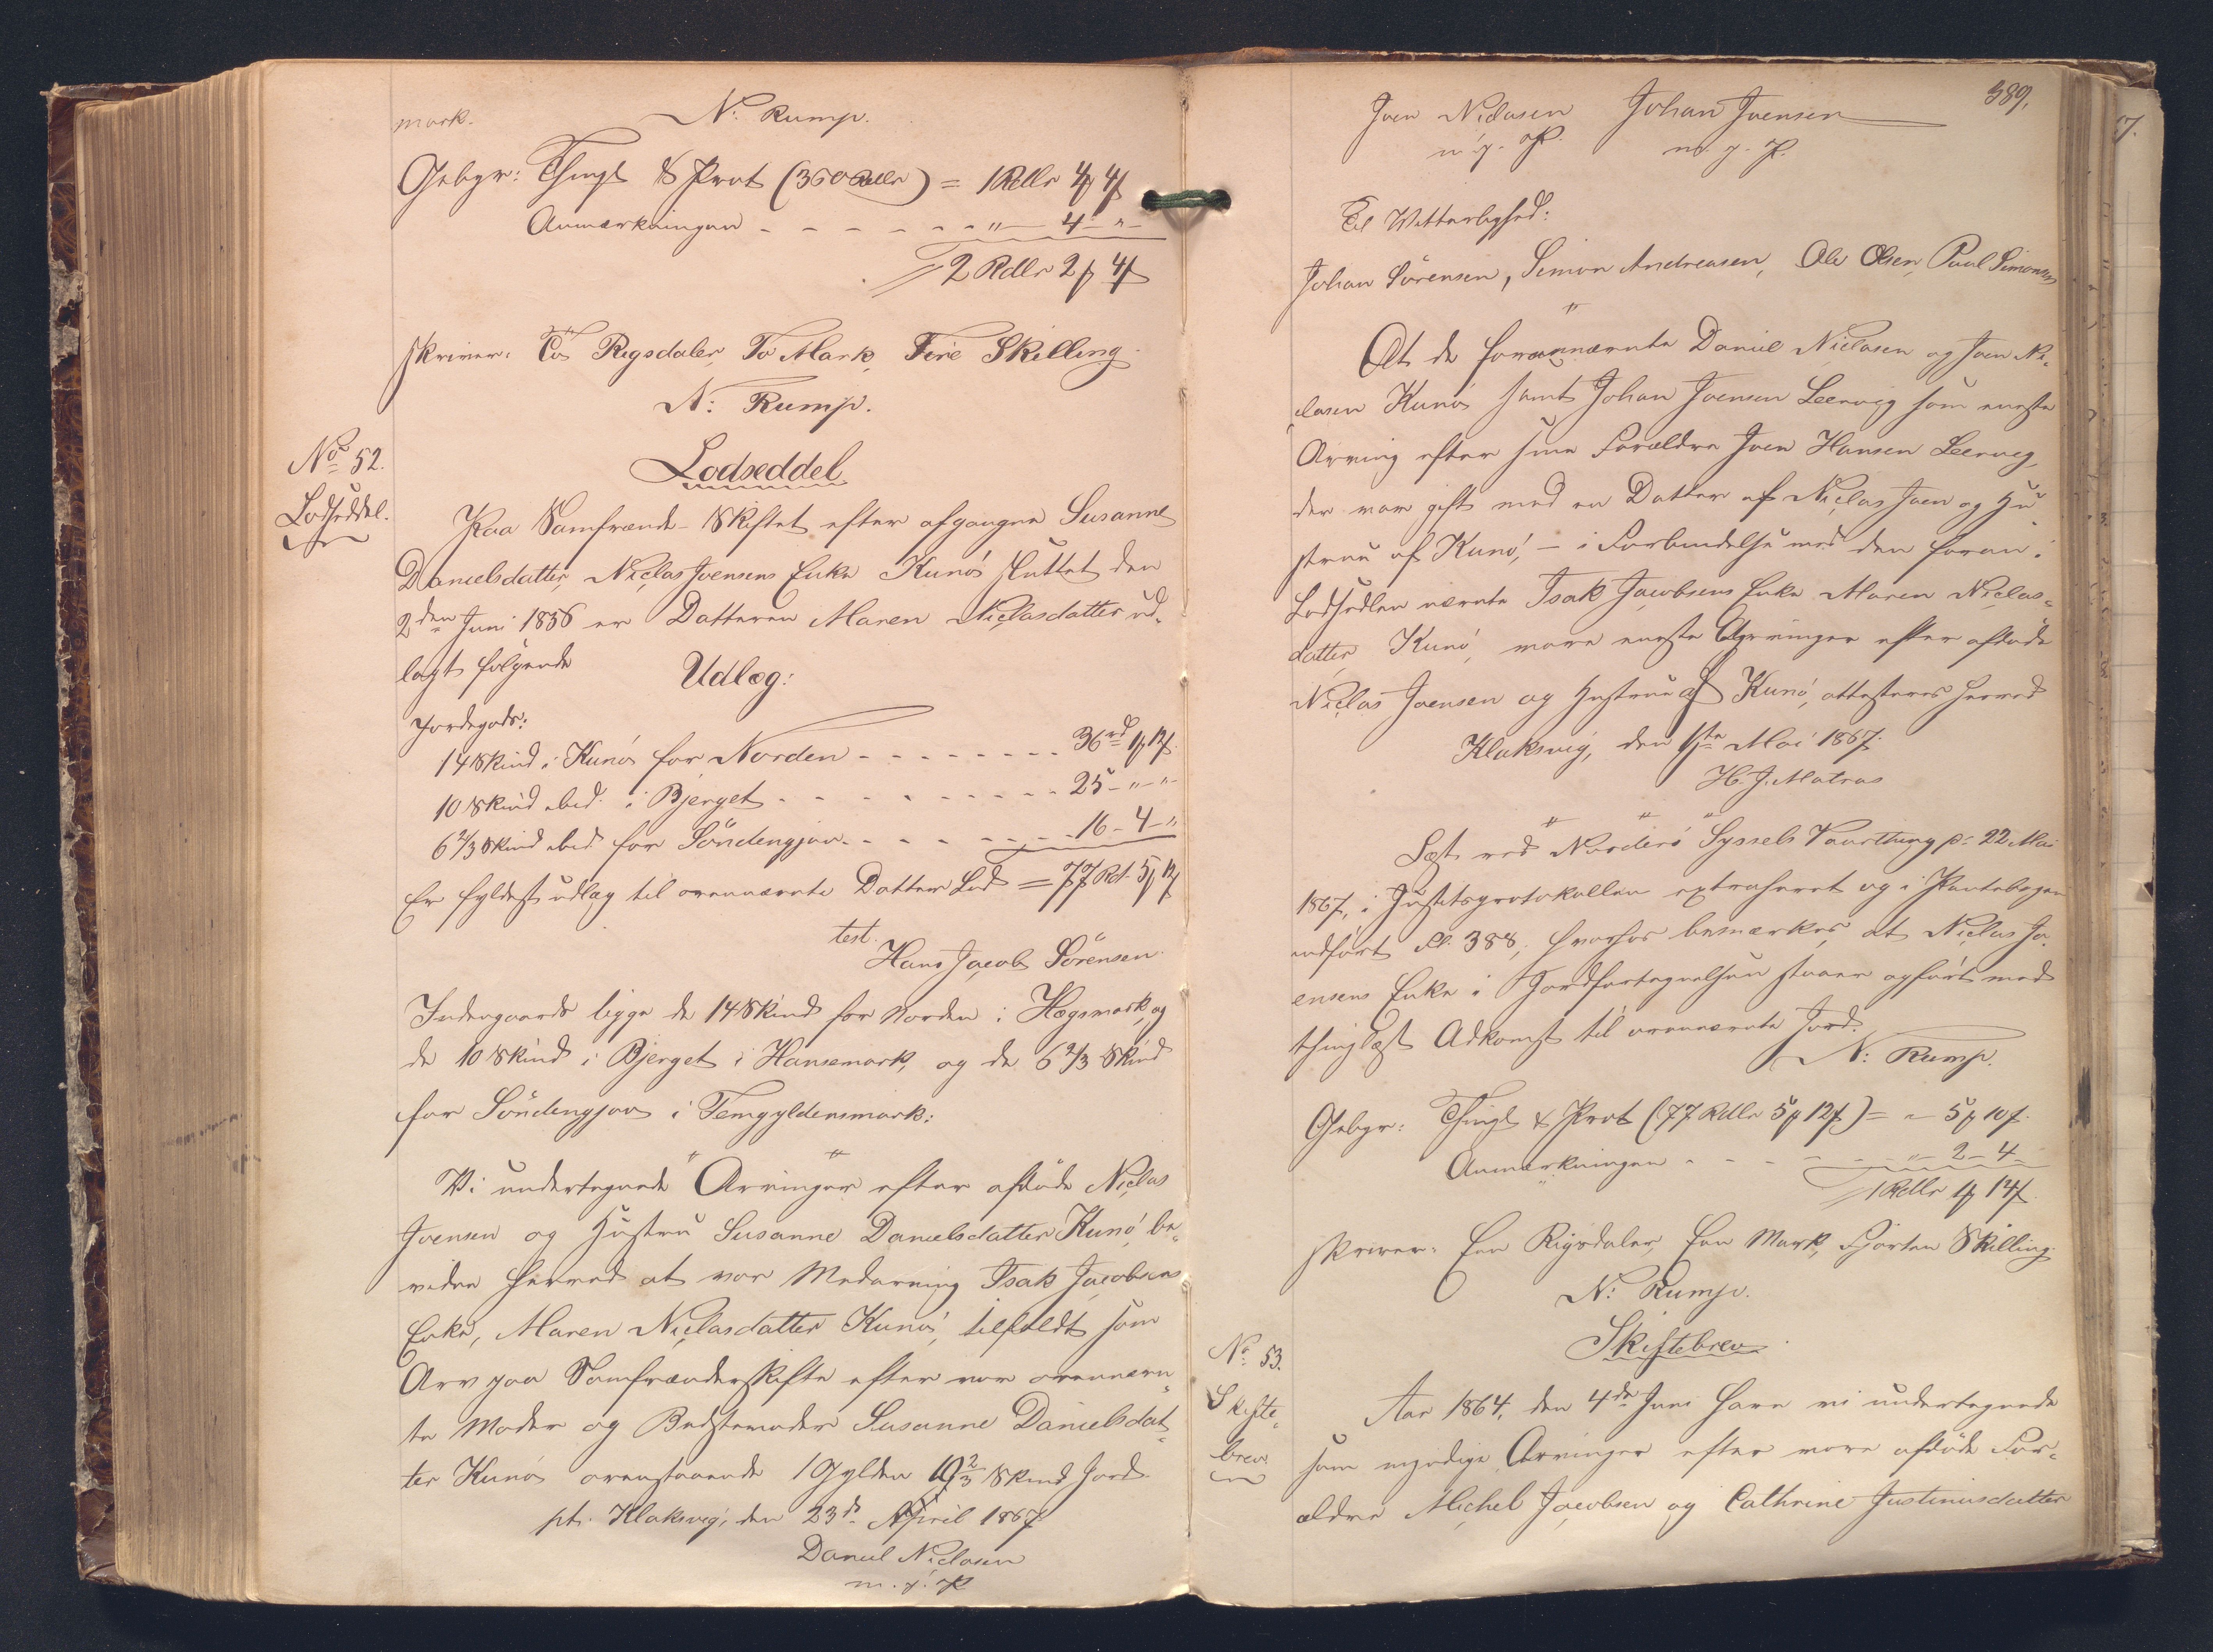 mark.
N: Rump.
Gebyr: Thingl & Prot (360 Rdlr) = 1 Rdlr 4 ꝳ 4 ß
Anmærkningen - - - - - - " 4 - " -
2 Rdlr 2 ꝳ 4 ß
skriver: To Rigsdaler, To Mark, Fire Skilling.
N: Rump.
No 52.
Lodseddel.
Lodseddel
Paa Samfrænde-Skiftet efter afgangne Susanne
Danielsdatter, Niclas Joensens Enke Kunö sluttet den
2den Juni 1856 er Datteren Maren Niclasdatter ud-
lagt følgende
Udlæg:
Jordegods:
14 Skind i Kunö for Norden - - - - - - - - 36 rd 1 ꝳ 12 ß
10 Skind ibid. i Bjerget - - - - - - - - 25 - " - " -
6 2/3 Skind ibid. for Söndengjov - - - - - - 16 - 4 - "
Er fyldest udlag til ovennævnte Datters Lod = 77 Rd. 5 ꝳ 12 ß
test.
Hans Jacob Sörensen.
Indengaards ligge de 14 Skind for Norden i Høgsmark, og
de 10 Skind i Bjerget i Hansemark, og de 6 2/3 Skind
for Söndengjov i Femgyldensmark:
Vi undertegnede Arvinger efter afdøde Niclas
Joensen og Hustru Susanne Danielsdatter Kunö, be-
vidne herved at vor Medarving Isak Jacobsens
Enke, Maren Niclasdatter Kunö, tilfaldt som
Arv paa Samfrænderskifte efter vor ovennævn-
te Moder og Bedstemoder Susanne Danielsdat-
ter Kunö ovenstaaende 1 Gylden 10 2/3 Skind Jord.
pt. Klaksvig, den 23de April 1867
Daniel Niclasen
m. f. P.
389.
Joen Niclasen Johan Joensen
m. f. P. m. f. P.
Til Vitterlighed:
Johan Sörensen, Simon Andreasen, Ole Olsen, Paul Simonsen
At de forannævnte Daniel Niclasen og Joen Ni-
clasen Kunö samt Johan Joensen Leervig som eneste
Arving efter sine Forældre Joen Hansen Leervig,
der var gift med en Datter af Niclas Joen og Hu-
strue af Kunö, - i Forbindelse med den foran i
Lodsedlen nævnte Isak Jacobsens Enke Maren Niclas-
datter Kunö, vare eneste Arvinger efter afdøde
Niclas Joensen og Hustrue af Kunö, attesteres herved
Klaksvig, den 1ste Mai 1867.
H. J. Matras
Læst ved Norderö Syssels Vaarthing p: 22 Mai
1867, i Justitsprotokollen extraheret og i Pantebogen
indført Fl. 388, hvorhos bemærkes, at Niclas Jo-
ensens Enke i Jordfortegnelsen staaer opført med
thinglæst Adkomst til ovennævnte Jord.
N: Rump.
Gebyr: Thingl & Prot (77 Rdlr 5 ꝳ 12 ß) = - 5 ꝳ 10 ß
Anmærkningen - - - - - " - 2 - 4
1 Rdlr 1 ꝳ 14 ß
skriver: Een Rigsdaler, Een Mark, Fjorten Skilling.
N: Rump.
No 53.
Skifte-
brev
Skiftebrev
Aar 1864, den 4de Juni have vi undertegnede
som myndige Arvinger efter vore afdøde For-
ældre Michel Jacobsen og Cathrine Justinusdatter